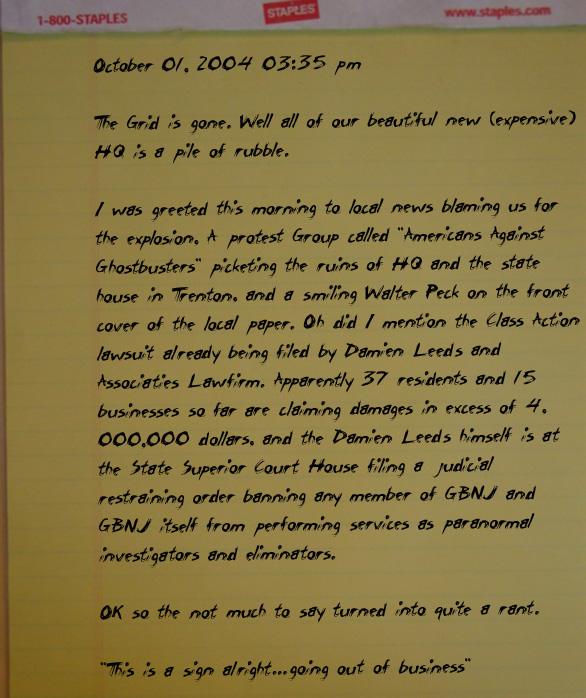 1-800-STAPLES
STAPLES
www.staples.com
October 01, 2004 03:35 pm
The Grid is gone. Well all of our beautiful new (expensive)
HQ is a pile of rubble.
I was greeted this morning to local news blaming us for
the explosion. A protest Group called "Americans Against
Ghostbusters" picketing the ruins of HQ and the state
house in Trenton, and a smiling Walter Peck on the front
cover of the local paper. Oh did I mention the Class Action
lawsuit already being filed by Damien Leeds and
Associaties Lawfirm. Apparently 37 residents and 15
businesses so far are claiming damages in excess of 4,
000,000 dollars, and the Damien Leeds himself is at
the State Superior Court House filing a judicial
restraining order banning any member of GBNJ and
GBNJ itself from performing services as paranormal
investigators and eliminators.
OK so the not much to say turned into quite a rant.
"This is a sign alright...going out of business"